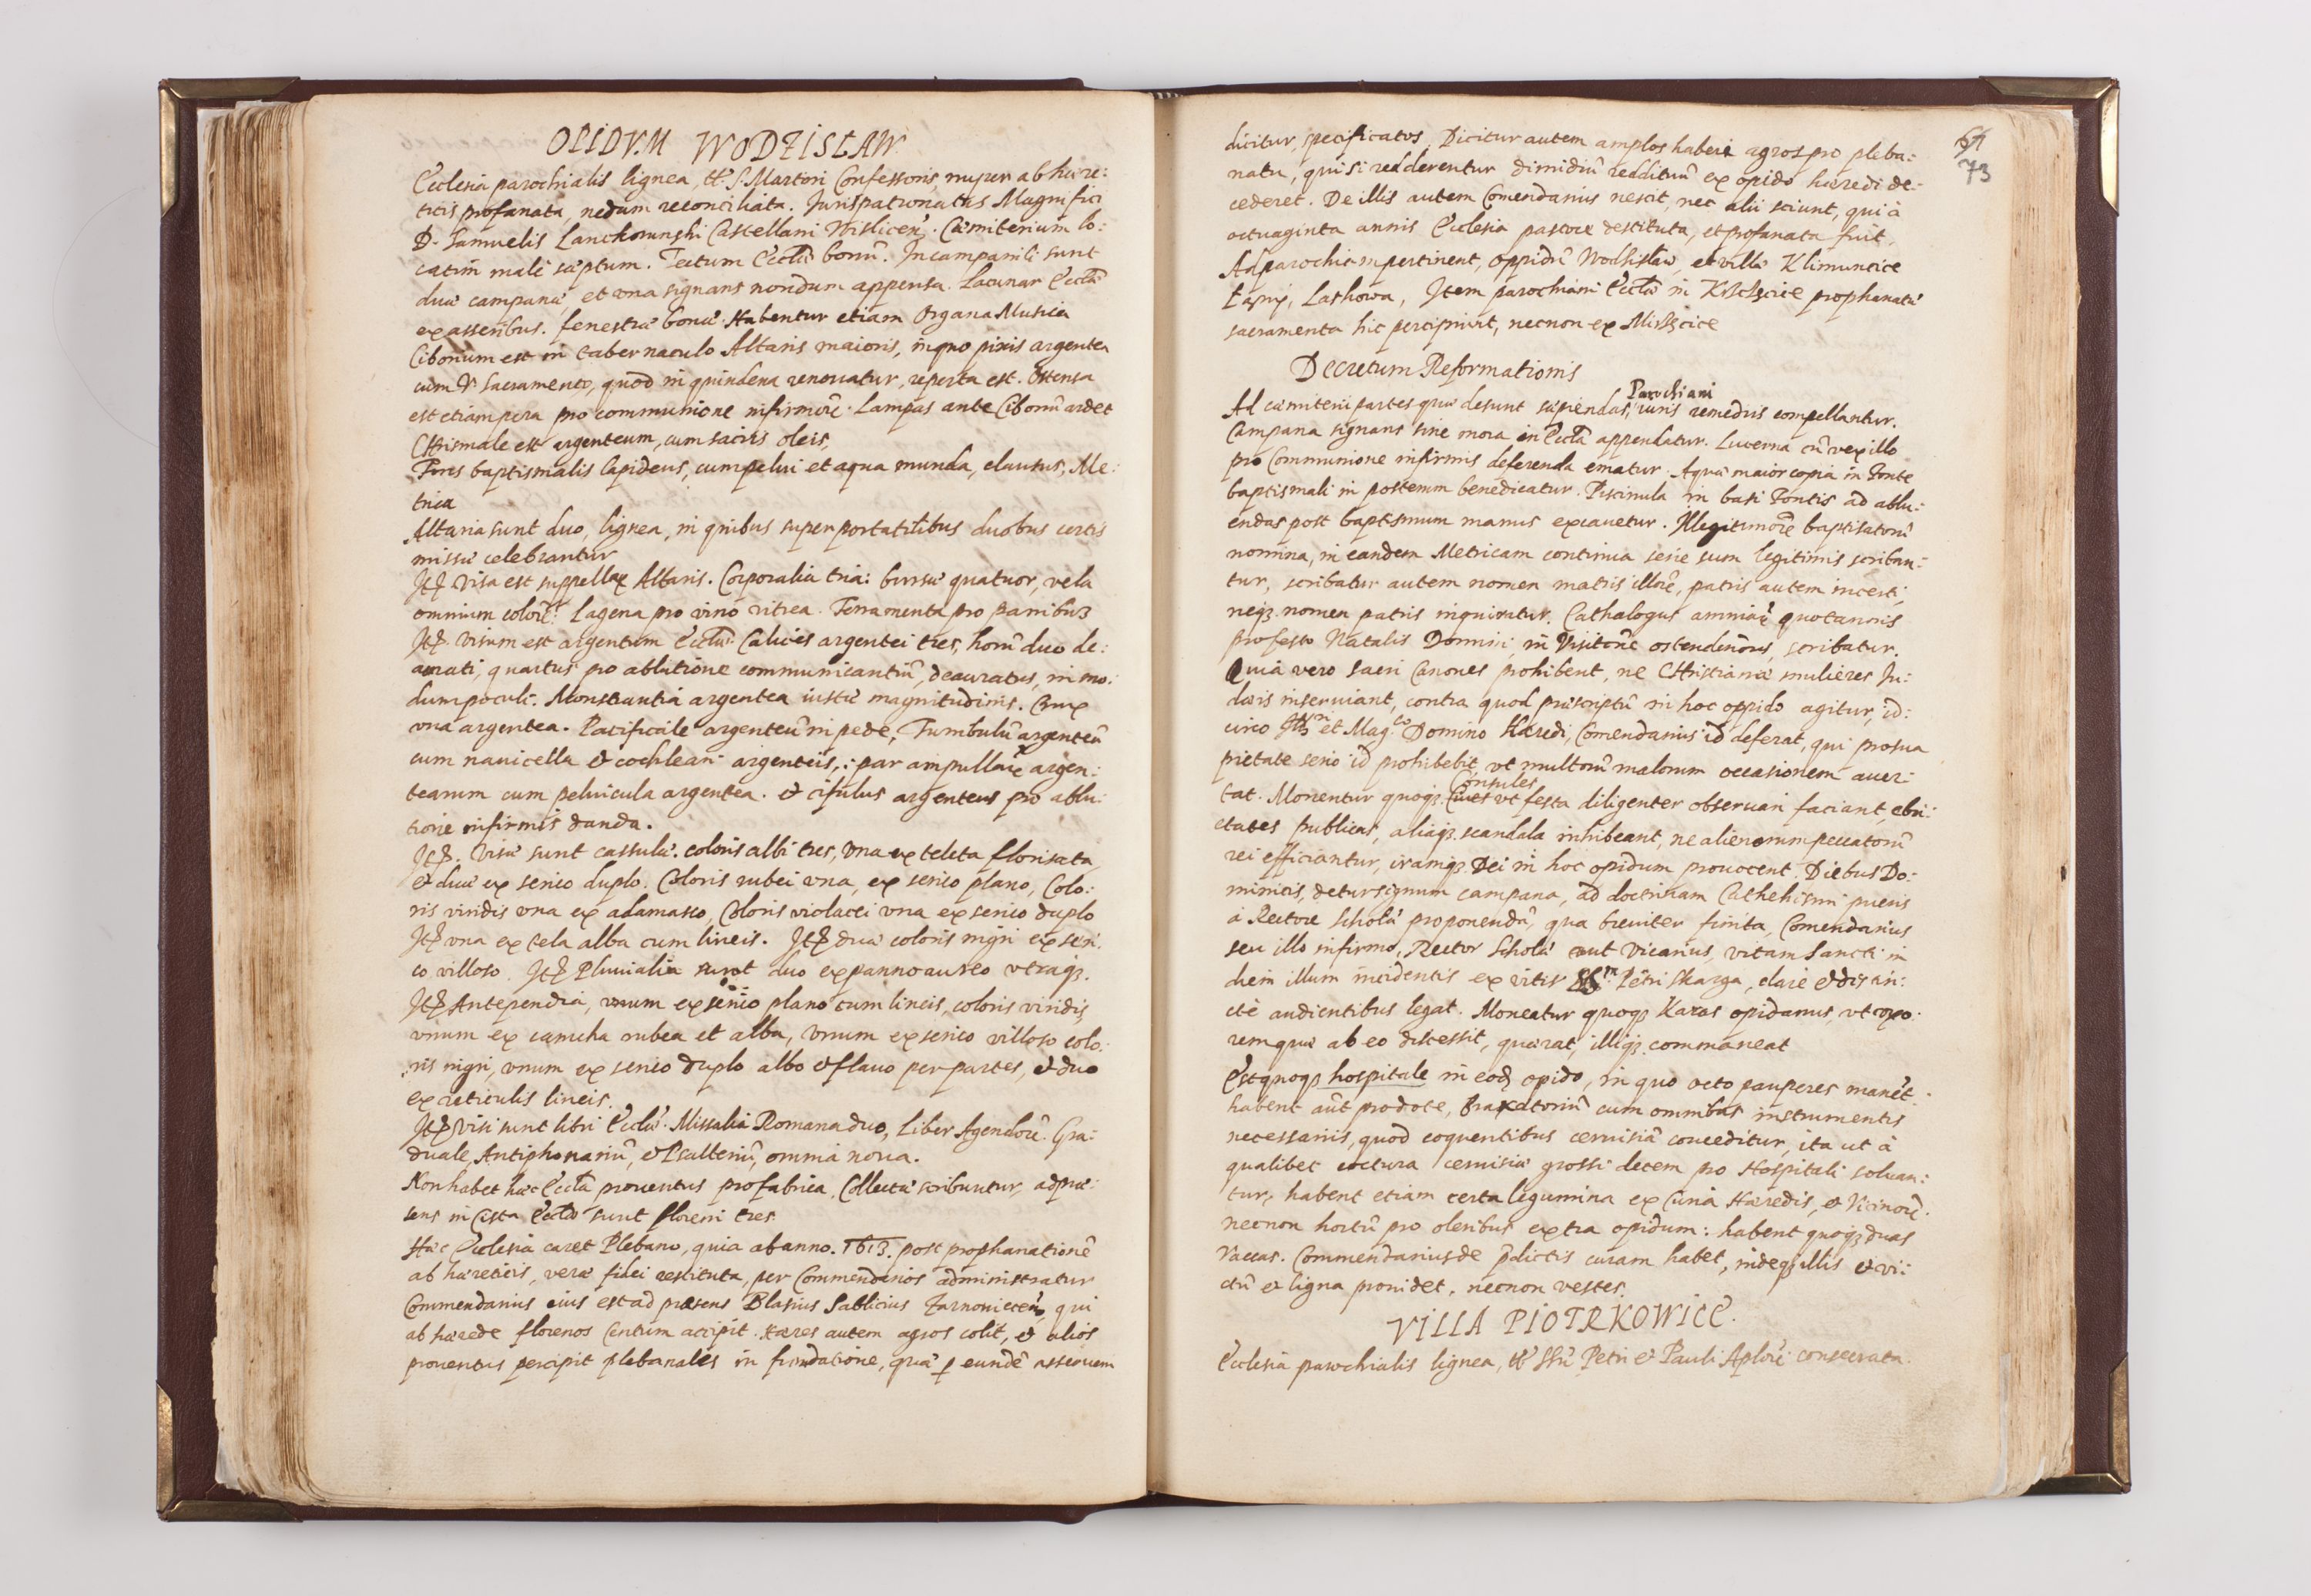 OPIDVM WODZISLAW
Ecclesia parochialis lignea, tt. S. Martini Confessoris, nuper ab hære:
ticis profanata, nedum reconciliata. Jurispatronatus Magnifici
D. Samuelis Lanckorunshi Castellani Wislicen. Cæmiterium lo:
catim male sæptum. Tectum Eccłæ bonũ. In campanili sunt
duæ campanæ et vna signans nondum appensa. Lacunar Eccłæ
ex asseribus. fenestræ bonæ. Habentur etiam Organa Musica
Ciborium est in tabernaculo Altaris maioris, in quo pixis argentea
cum V. Sacramento, quod in quindena renouatur, reperta est. Ostensa
est etiam pera pro communione infirmorũ. Lampas ante Ciboriũ ardet
Chrismale est argenteum, cum sacris oleis,
Fons baptismalis lapideus, cum pelui et aqua munda, clausus, Me:
trica
Altaria sunt duo, lignea, in quibus super portatilibus duobus certis
missæ celebrantur
Itẽ visa est suppellex Altaris. Corporalia tria: bursæ quatuor, vela
omnium colorũ. Lagena pro vino vitrea. Ferramenta pro panibus
Itẽ. Visum est argentum Eccłæ. Calices argentei tres, horũ duo de:
aurati, quartus pro ablutione communicantiũ, deauratus, in mo:
dum poculi. Monstrantia argentea iustæ magnitudinis. Crux
vna argentea. Pacificale argenteũ in pede, Turribulũ argenteũ
cum nauicella & cochleari argenteis, : par ampullarũ argen:
tearum cum peluicula argentea. & cifulus argenteus pro ablu:
tione infirmis danda.
Itẽ. Visæ sunt cassulæ. coloris albi tres, vna ex teleta florisata
& duæ ex serico duplo. Coloris rubei vna, ex serico plano, Colo:
ris viridis vna ex adamasco, Coloris violacei vna ex serico duplo
Itẽ vna ex tela alba cum lineis. Itẽ duæ coloris nigri ex seri:
co villoso. Itẽ Pluuialia sunt duo ex panno aureo vtraq3.
Itẽ Antependia, vnum ex serico plano cum lineis, coloris viridis,
vnum ex camcha rubea et alba, vnum ex serico villoso colo:
ris nigri, vnum ex serico duplo albo & flauo per partes, & duo
ex reticulis lineis.
Itẽ Visi sunt libri Eccłæ. Missalia Romana duo, Liber Agendorũ. Gra:
duale, Antiphonariũ, & Psalteriũ, omnia noua.
Non habet hæc Eccła prouentus pro fabrica. Collectæ scribuntur, ad præ:
sens in Cista Eccłæ sunt floreni tres
Hæc Ecclesia caret Plebano, quia ab anno. 1613. post prophanationẽ
ab hæreticis, veræ fidei restituta, per Commendarios administratur
Commendarius eius est ad præsens Blasius Sablicius Zarnouiecen, qui
ab hærede florenos centum accipit. Hæres autem agros colit, & alios
prouentus percipit plebanales in fundatione, quæ p eundẽ asseruem
dicitur, specificatos. Dicitur autem amplos haberi agros pro pleba:
natu, qui si redderentur dimidiũ reddituũ ex opido hæredi de:
cederet. De illis autem Comendarius nescit, nec alii sciunt, qui à
octuaginta annis Ecclesia pastore destituta, et profanata fuit.
Ad parochiam pertinent, oppidũ Wodsislaw, et villæ Klimuntice
Łąny, Lashowa, Item parochiani Eccłæ in prophanatæ
sacramenta hic percipiunt, necnon ex Mirszcice
Decretum Reformationis
Parochiani
Ad cæmiterii partes quæ desunt sæpiendas, iuris remediis compellantur.
Campana signans sine mora in Eccła appendatur. Lucerna cũ vexillo
pro Communione infirmis deferenda ematur. Aquæ maior copia in Fonte
baptismali in posterum benedicatur. Piscinula in basi Fontis ad ablu:
endas post baptismum manus excauetur. Illegitimorũ baptisatorũ
nomina, in eandem Metricam continua serie cum legitimis scriban:
tur, scribatur autem nomen matris illorũ, patris autem incerti,
neq3. nomen patris inquiratur. Cathalogus quotannis
profesto Natalis Domini, in Visitõne ostendendus, scribatur.
Quia vero sacri Canones prohibent, ne Christianæ mulieres Ju:
dæis inseruiant, contra quod præscriptũ in hoc oppido agitur, id:
circo et Mag.co Domino Hæredi, Comendarius id deferat, qui pro sua
pietate serio id prohibebit, vt multorũ malorum occasionem auer:
Consules
tat. Monentur quoq3. Ciues vt festa diligenter obseruari faciant, ebri:
etates publicas, aliaq3. scandala inhibeant, ne alienorum peccatorũ
rei efficiantur, iramq3. Dei in hoc opidum prouocent. Diebus Do:
minicis, detur signum campana, ad doctrinam Cathehismi pueris
à Rectore Scholæ proponendã, qua breuiter finita, Comendarius
seu illo infirmo, Rector Scholæ aut Vicarius, vitam Sancti in
diem illum incidentis ex vitis SS.m Petri Skarga, clare & distin:
cte audientibus legat. Moneatur quoq3 Karas opidanus, vt vxo:
rem quæ ab eo discessit, quærat, illiq3. commaneat
Est quoq3 hospitale in eod. opido, in quo octo pauperes manẽt.
habent aũt pro dote, braxatoriũ cum omnibus instrumentis
necessariis, quod coquentibus ceruisiã conceditur, ita ut à
qualibet coctura ceruisiæ grossi decem pro Hospitali soluan:
tur, habent etiam certa legumina ex Curia Hæredis, & Vicinorũ.
necnon hortũ pro oleribus extra opidum: habent quoq3 duas
vaccas. Commendarius de p̃dictis curam habet, indeq3 illis & vi:
ctũ & ligna prouidet, necnon vestes.
VILLA PIOTRKOWICE.
Ecclesia parochialis lignea, tt. SSrũ Petri & Pauli Aplorũ consecrata.
73